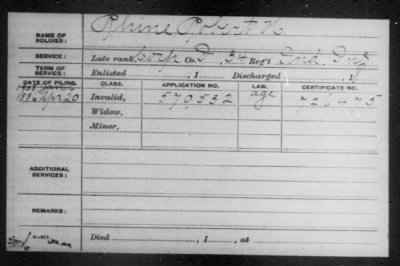 NAME OF SOLDIER: Robert H
SERVICE: Late rank, Corp Co. D, 34 Reg't Inf
TERM OF SERVICE: Enlisted , 1 Discharged , 1
DATE OF FILING. CLASS. APPLICATION NO. LAW. CERTIFICATE NO.
188 Apr 20 Invalid, 570532 age 726475
Widow,
Minor,
ADDITIONAL SERVICES:
REMARKS:
Died , 1 , at